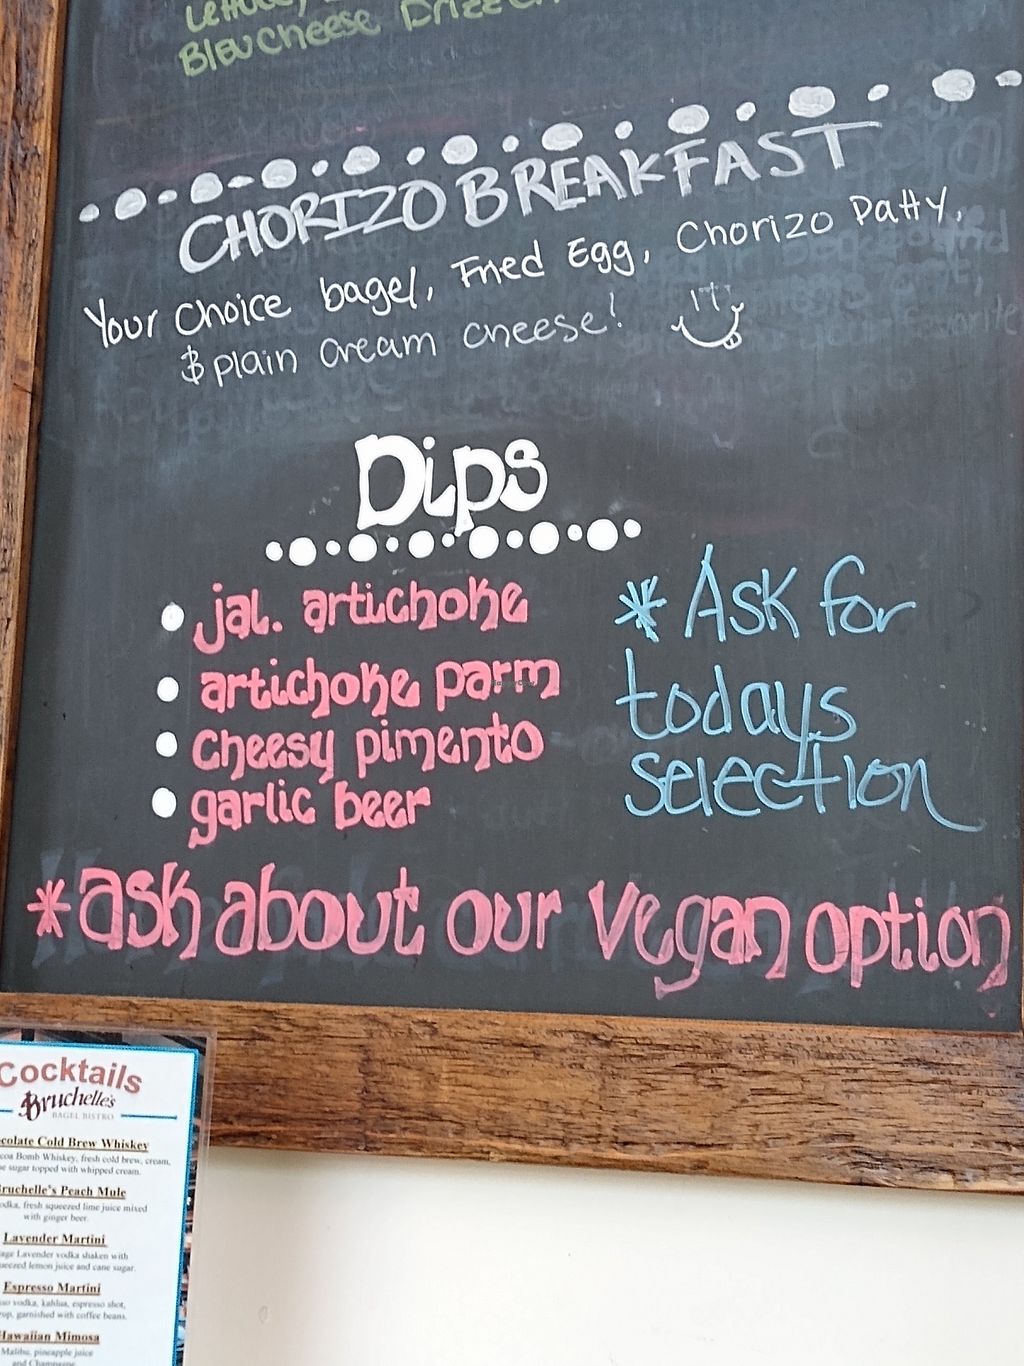 Bleu Cheese
CHORIZO BREAKFAST
Your choice bagel, Fried Egg, Chorizo Patty,
& plain cream cheese!
Dips
jal. artichoke
artichoke parm
cheesy pimento
garlic beer
* Ask for
todays
selection
*ask about our vegan option
Cocktails
Bruchelle's
BAGEL BISTRO
Cold Brew Whiskey
Bomb Whiskey, fresh cold brew, cream,
sugar topped with whipped cream.
Bruchelle's Peach Mule
fresh squeezed lime juice mixed
with ginger beer.
Lavender Martini
Lavender vodka shaken with
lemon juice and cane sugar.
Espresso Martini
vodka, kahlua, espresso shot,
garnished with coffee beans.
Hawaiian Mimosa
Malibu, pineapple juice
and Champagne